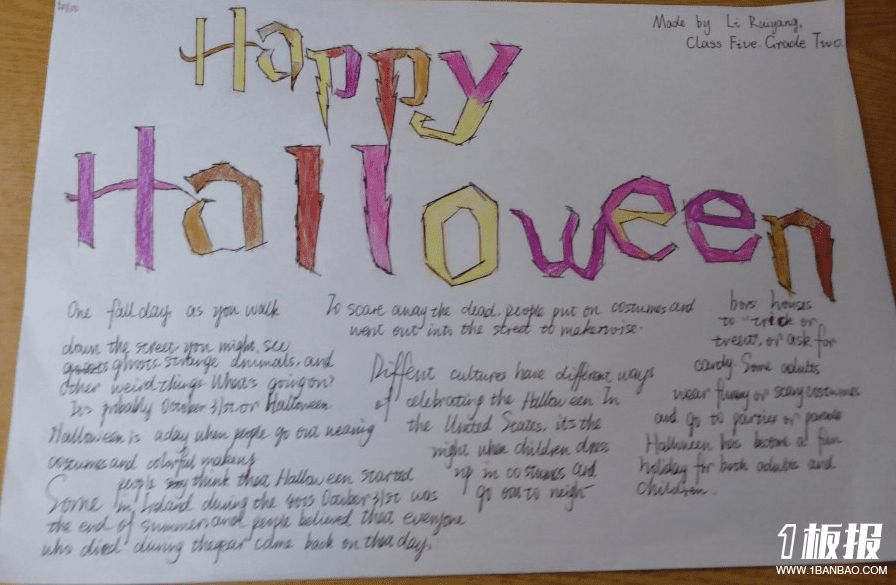 Made by Li Ruiyang.
Class Five. Grade Two
Happy
Halloween
One fall day, as you walk
down the street, you might, see
ghosts, strange animals, and
other weird things. Whats going on?
Its probably October 31st or Halloween
Halloween is a day when people go out wearing
costumes and colorful makeup
Some people think that Halloween started
in Ireland during the October 31st was
the end of summer, and people believed that everyone
who died during the year came back on that day.
To scare away the dead. people put on costumes and
went out into the street to make noise.
Diffent cultures have different ways
of celebrating the Halloween In
the United States, it's the
night when children dress
up in costumes and
go out to neigh
bors houses
to "trick or
treat", or ask for
candy. Some adults
wear funny or scary costumes
and go to parties or parade
Halloween has become a fun
holiday for both adults and
children.
1板报
WWW.1BANBAO.COM